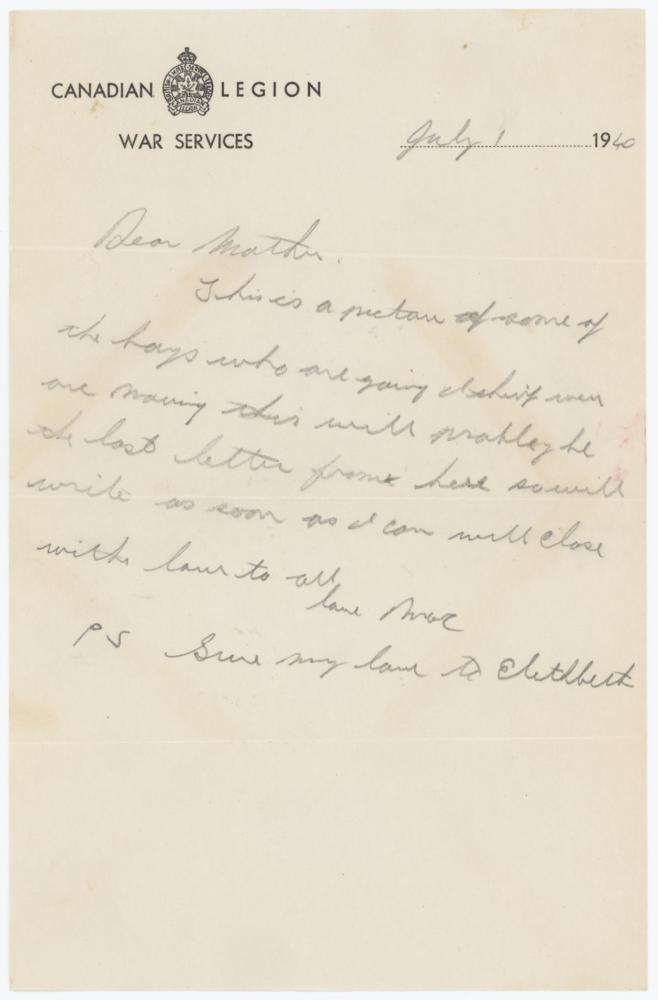 CANADIAN LEGION
WAR SERVICES
July 1 1940
Dear Mother.
This is a picture of some of
the boys who are going I think were
are moving this will probley be
the last letter from here so will
write as soon as I can will close
with love to all
love Mac
PS Give my love to Elethbeth